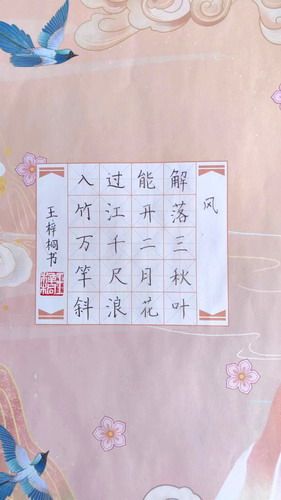 风
解落三秋叶
能开二月花
过江千尺浪
入竹万竿斜
王梓桐书